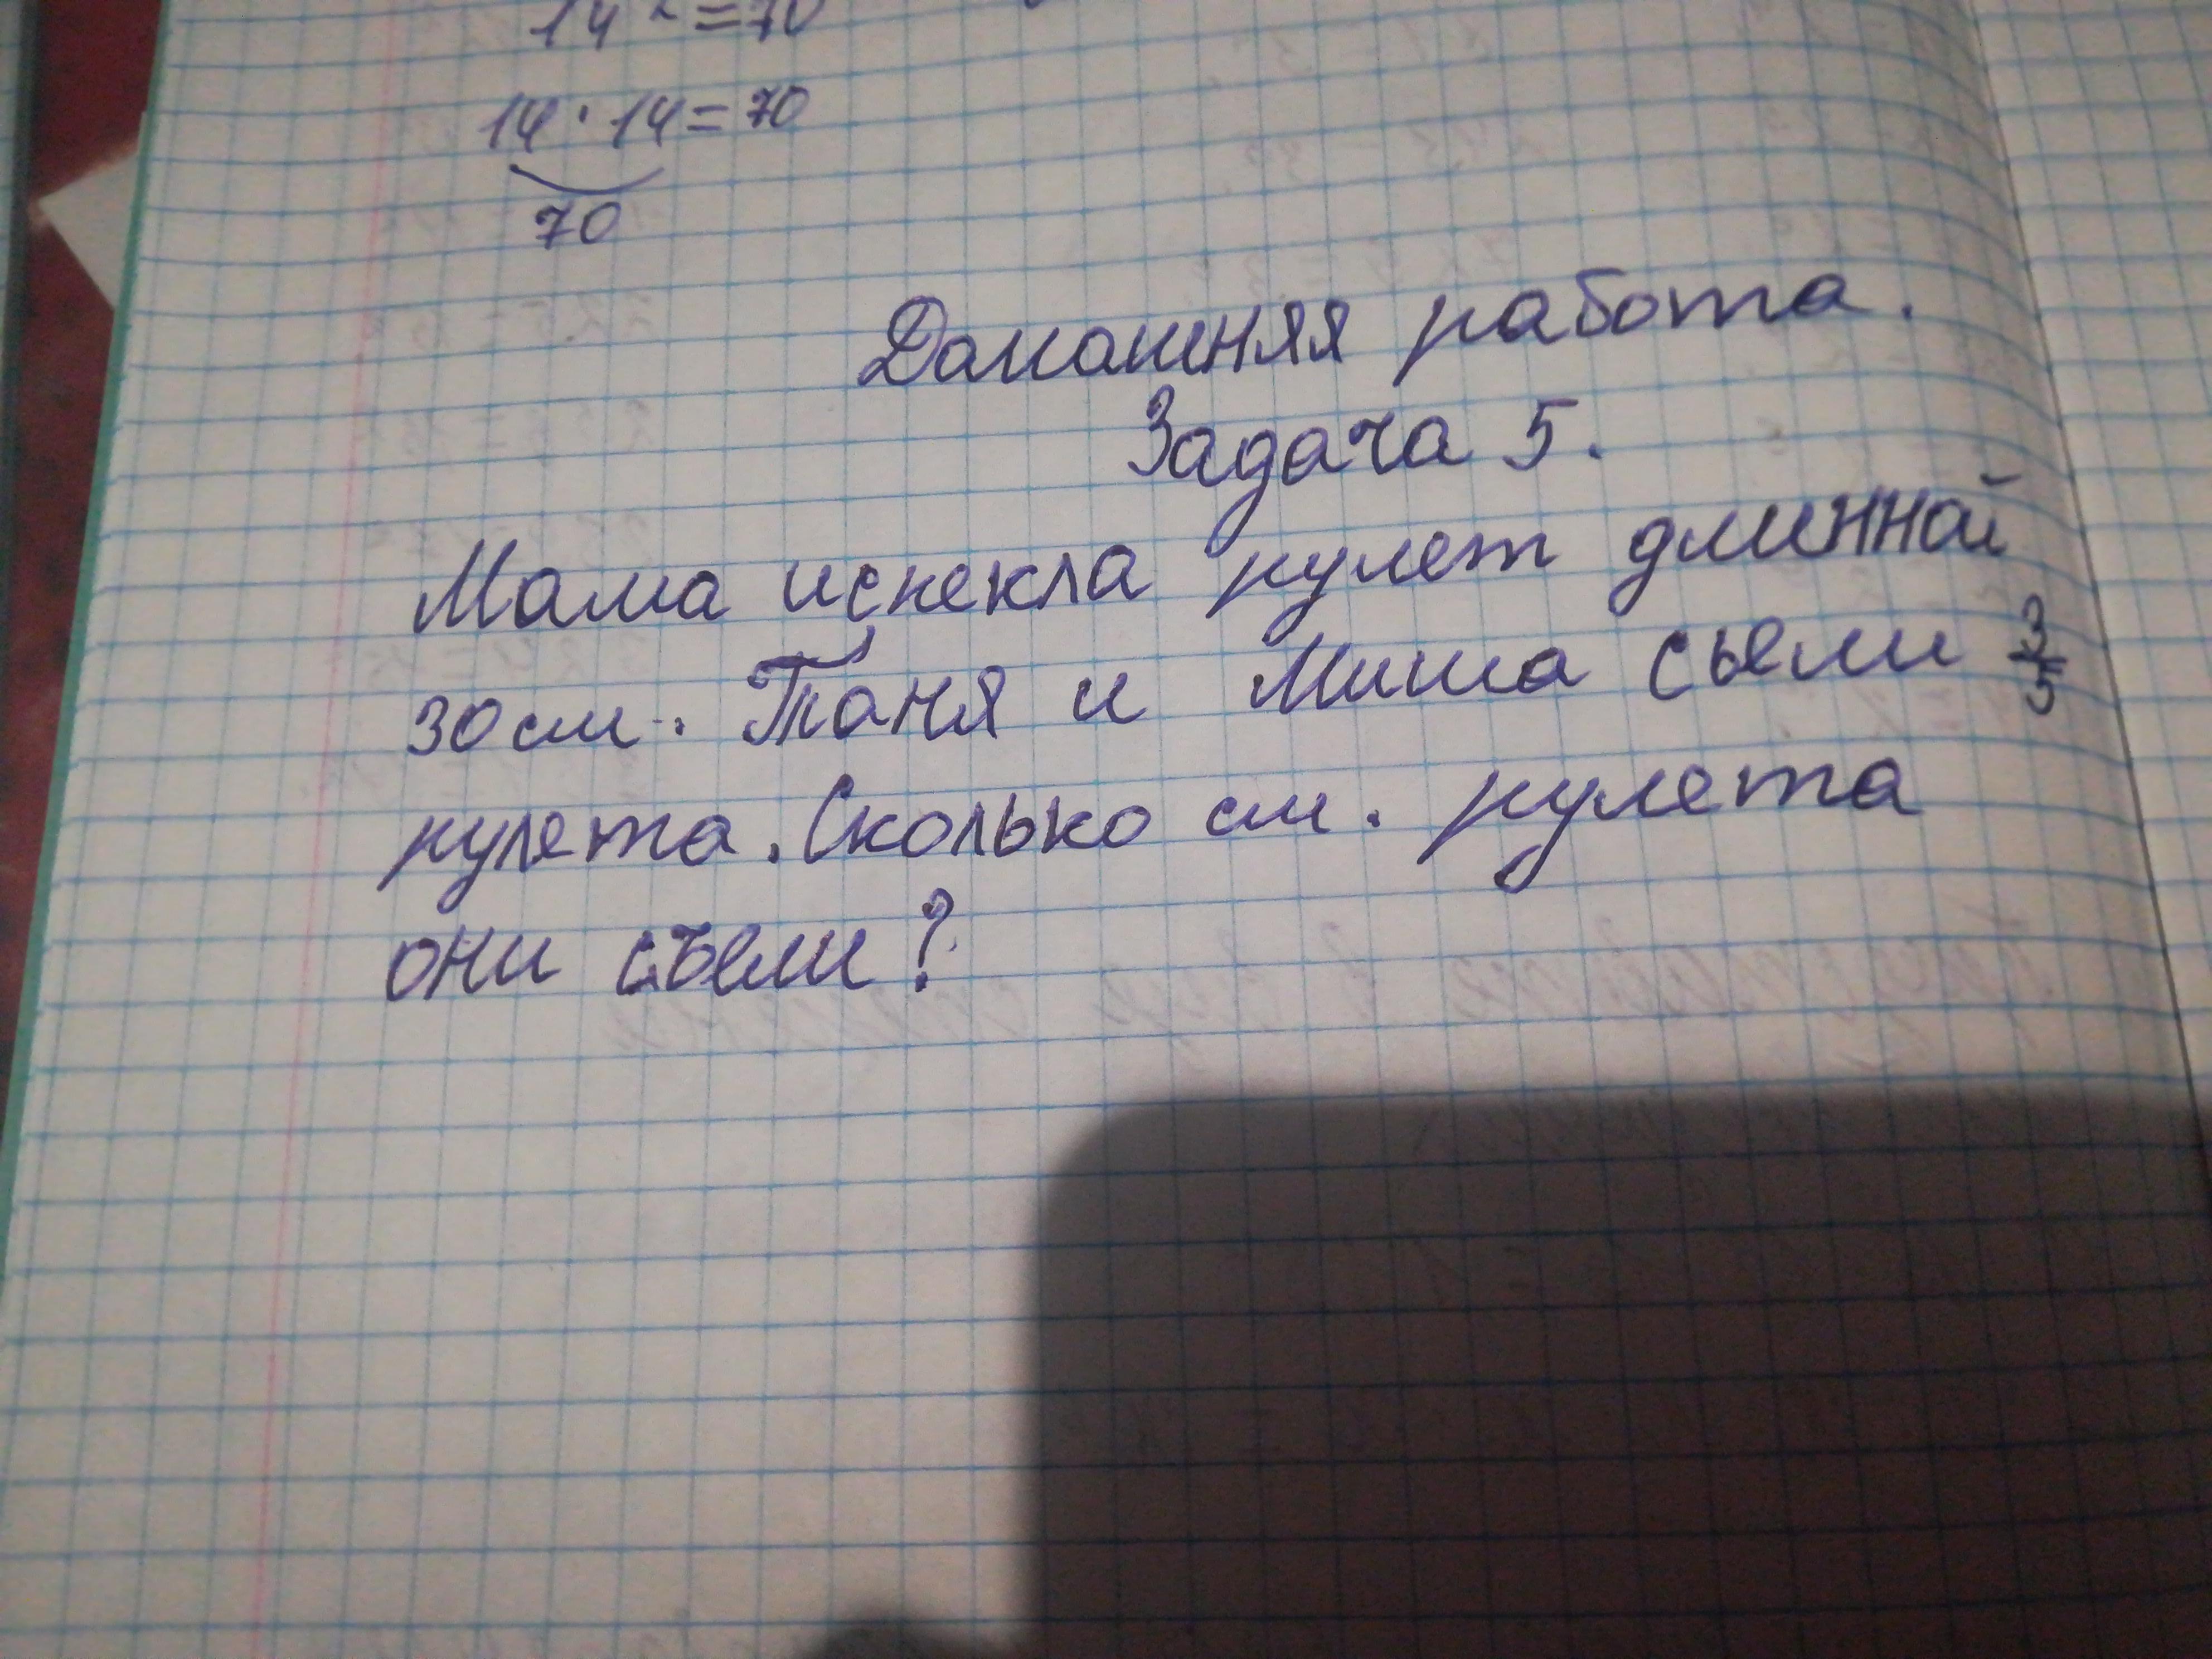 14 = 70
14 · 14 = 70
70
Домашняя работа.
Задача 5.
Мама испекла рулет длинной
30 см. Таня и Миша сьели 3/5
рулета. Сколько см. рулета
они съели?